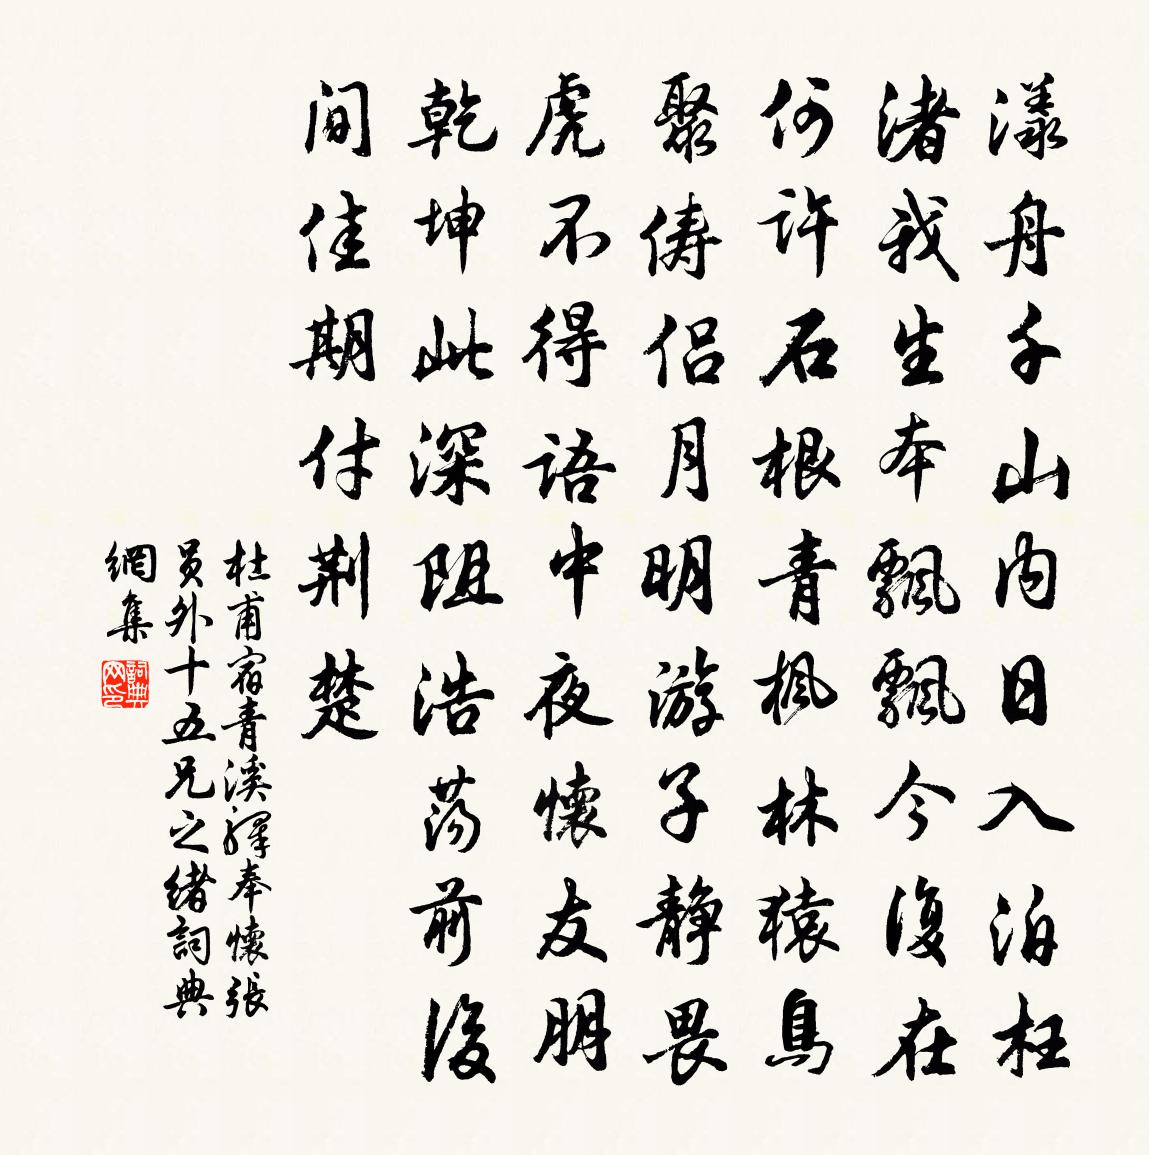 漾舟千山內日入泊枉
渚我生本飄飄今復在
何許石根青楓林猿鳥
聚儔侶月明游子靜畏
虎不得語中夜懷友朋
乾坤此深阻浩蕩前後
間佳期付荆楚
杜甫宿青溪驛奉懷張
員外十五兄之緒詞典
網集
詞典
网印